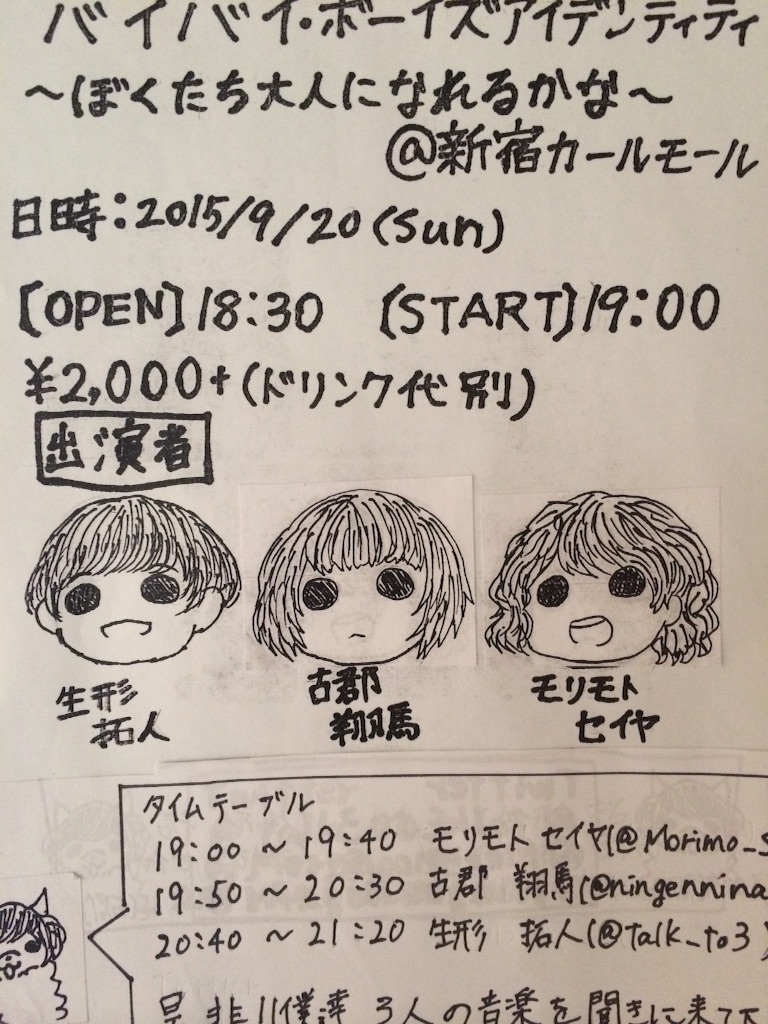 バイバイ・ボーイズアイデンティティ
～ぼくたち大人になれるかな～
@新宿カールモール
日時：2015/9/20(Sun)
[OPEN]18:30 [START]19:00
¥2,000+(ドリンク代別)
出演者
生形
拓人
古郡
翔馬
モリモト
セイヤ
タイムテーブル
19:00 ～ 19:40 モリモト セイヤ(@Morimo_s
19:50 ～ 20:30 古郡 翔馬(@ningennina
20:40 ～ 21:20 生形 拓人(@talk_to3)
是非!!僕達 3人の音楽を聞きに来て下